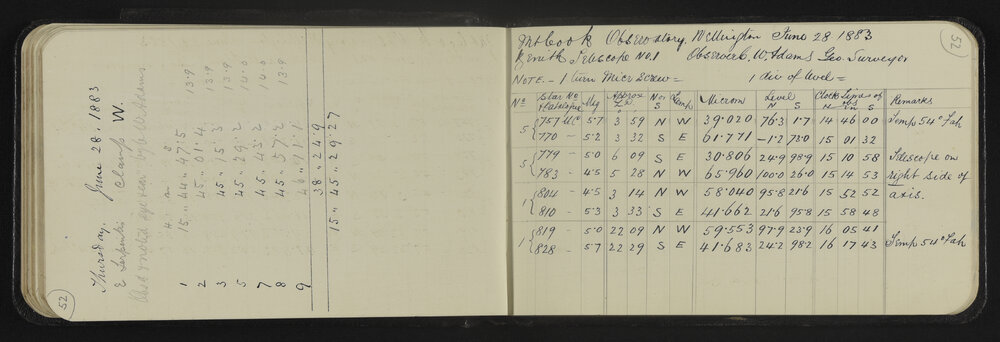 52
Thursday. June 28. 1883
E Serpentis Clamp W.
h m s
1 15 .. 44 .. 47.5
2 45 .. 01.4 13.9
3 45 .. 15.3 13.9
5 45 .. 29.2 13.9
7 45 .. 43.2 14.0
8 45 .. 57.2 14.0
9 46 .. 11.1 13.9
38 .. 24.9
15 .. 45 .. 29.27
52
Mt Cook Observatory, Wellington June 28 1883
Zenith Telescope No. 1 Observer C. W. Adams Geo. Surveyor
NOTE. - 1 turn Micr Screw = 1 div of level =
No Star No Catalogue Mg Approx Z.D. N or S Clamp Microm Level N S Clock Times of obs H m S Remarks
5 { 757 UC 5.7 3 59 N W 39.020 76.3 1.7 14 46 00 Temp 54° Fah
770 - 5.2 3 32 S E 61.771 -1.2 73.0 15 01 32
5 { 779 - 5.0 6 09 S E 30.806 24.9 98.9 15 10 58 Telescope on
783 - 4.5 5 28 N W 65.960 100.0 26.0 15 14 53 right side of
1 { 804 - 4.5 3 14 N W 58.040 95.8 21.6 15 52 52 axis.
810 - 5.3 3 33 S E 41.662 21.6 95.8 15 58 48
1 { 819 - 5.0 22 09 N W 59.553 97.9 23.9 16 05 41
828 - 5.7 22 29 S E 41.683 24.2 98.2 16 17 43 Temp 54° Fah